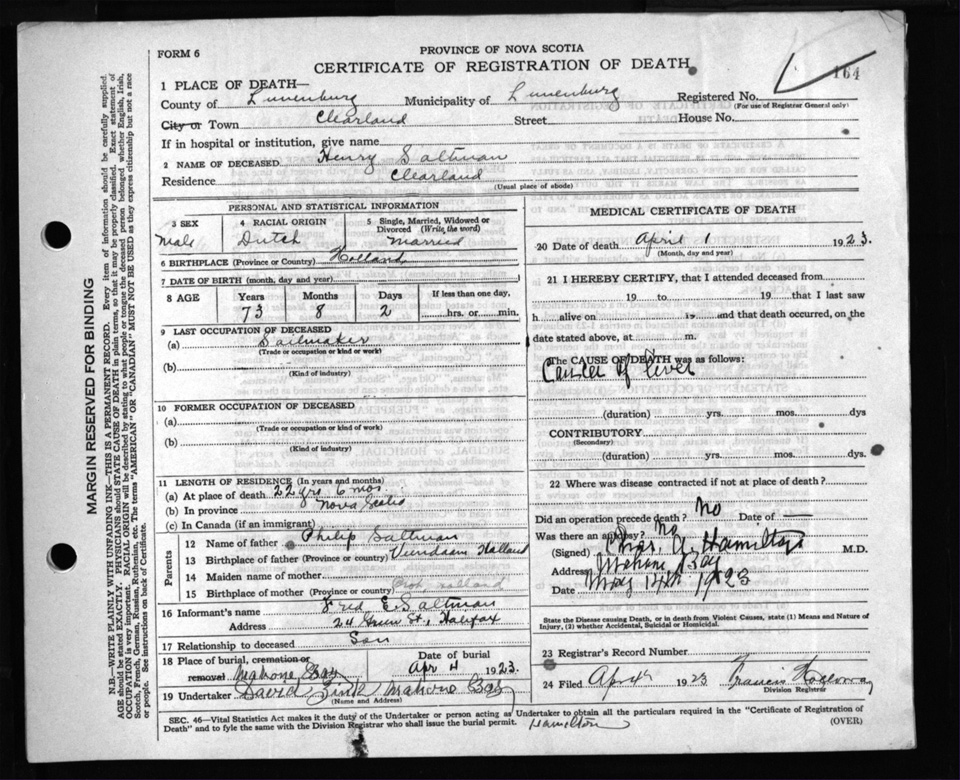 FORM 6
PROVINCE OF NOVA SCOTIA
CERTIFICATE OF REGISTRATION OF DEATH
164
1 PLACE OF DEATH—
County of Lunenburg Municipality of Lunenburg Registered No.
(For use of Registrar General only)
City or Town Clearland Street House No.
If in hospital or institution, give name
2 NAME OF DECEASED Henry Saltman
Residence Clearland
(Usual place of abode)
PERSONAL AND STATISTICAL INFORMATION
3 SEX 4 RACIAL ORIGIN 5 Single, Married, Widowed or Divorced (Write the word)
Male Dutch Married
6 BIRTHPLACE (Province or Country) Holland
7 DATE OF BIRTH (month, day and year)
8 AGE Years Months Days If less than one day,
73 8 2 hrs. or min.
9 LAST OCCUPATION OF DECEASED
(a) Sailmaker
(Trade or occupation or kind or work)
(b)
(Kind of industry)
10 FORMER OCCUPATION OF DECEASED
(a)
(Trade or occupation or kind of work)
(b)
(Kind of industry)
11 LENGTH OF RESIDENCE (In years and months)
(a) At place of death 22 yrs 6 mos
(b) In province Nova Scotia
(c) In Canada (if an immigrant)
Parents
12 Name of father Philip Saltman
13 Birthplace of father (Province or country) Holland
14 Maiden name of mother
15 Birthplace of mother (Province or country) Holland
16 Informant's name Fred E Saltman
Address 24 St., Halifax
17 Relationship to deceased Son
18 Place of burial, cremation or removal Mahone Bay
Date of burial Apr 4 1923.
19 Undertaker David Zink Mahone Bay
(Name and Address)
MEDICAL CERTIFICATE OF DEATH
20 Date of death April 1 1923.
(Month, day and year)
21 I HEREBY CERTIFY, that I attended deceased from
19 to 19 that I last saw
h alive on 19 and that death occurred, on the
date stated above, at m.
The CAUSE OF DEATH was as follows:
Cancer of liver
(duration) yrs. mos. dys
CONTRIBUTORY
(Secondary)
(duration) yrs. mos. dys
22 Where was disease contracted if not at place of death?
Did an operation precede death? No Date of —
Was there an autopsy? No
(Signed) Chas. A. Hamilton M.D.
Address Mahone Bay
Date May 14th 1923
State the Disease causing Death, or in death from Violent Causes, state (1) Means and Nature of Injury, (2) whether Accidental, Suicidal or Homicidal.
23 Registrar's Record Number
24 Filed Apr 4 1923 Francis
Division Registrar
SEC. 46—Vital Statistics Act makes it the duty of the Undertaker or person acting as Undertaker to obtain all the particulars required in the "Certificate of Registration of
Death" and to fyle the same with the Division Registrar who shall issue the burial permit. Hamilton (OVER)
MARGIN RESERVED FOR BINDING
N.B.—WRITE PLAINLY WITH UNFADING INK—THIS IS A PERMANENT RECORD. Every item of information should be carefully supplied.
AGE should be stated EXACTLY. PHYSICIANS should STATE CAUSE OF DEATH in plain terms, so that it may be properly classified. Exact statement of
OCCUPATION is very important. RACIAL ORIGIN will be described by stating to what people or tongue the deceased person belonged whether English, Irish,
Scotch, French, German, Russian, Ruthenian, etc. The terms "AMERICAN" OR "CANADIAN" MUST NOT BE USED as they express citizenship but not a race
or people. See instructions on back of Certificate.